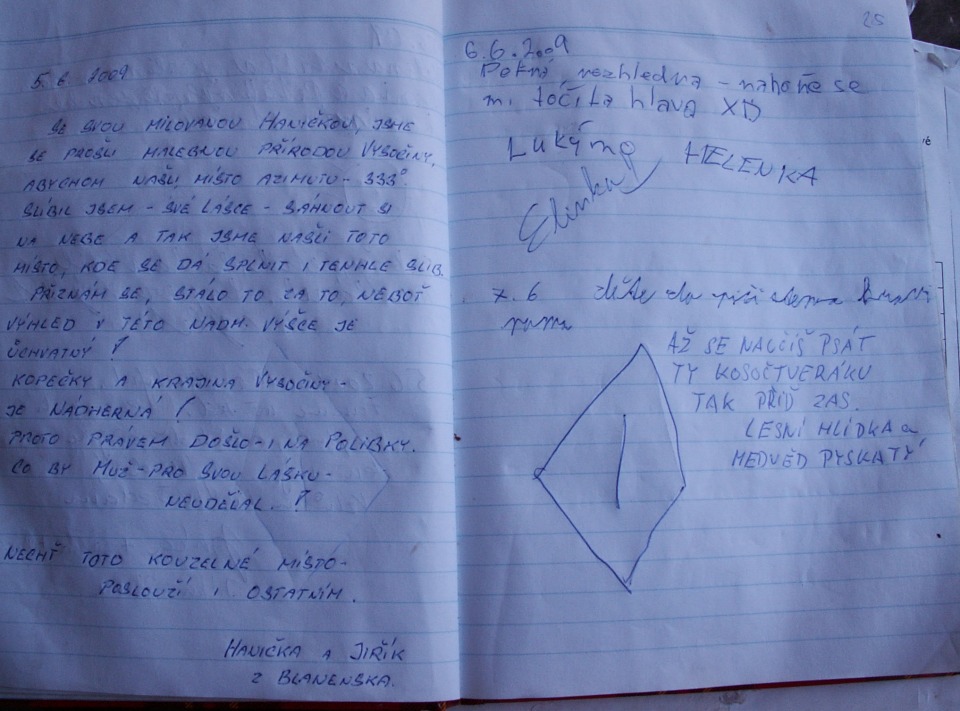 5.6 2009
SE SVOU MILOVANOU HANIČKOU, JSME
SE PROŠLI MALEBNOU PŘÍRODOU VYSOČINY,
ABYCHOM NAŠLI MÍSTO AZIMUTU - 333°.
SLÍBIL JSEM - SVÉ LÁSCE - SÁHNOUT SI
NA NEBE A TAK JSME NAŠLI TOTO
MÍSTO, KDE SE DÁ SPLNIT I TENHLE SLIB.
PŘIZNÁM SE, STÁLO TO ZA TO, NEBOŤ
VÝHLED V TÉTO NADM. VÝŠCE JE
ÚCHVATNÝ!
KOPEČKY A KRAJINA VYSOČINY -
JE NÁDHERNÁ!
PROTO PRÁVEM DOŠLO - I NA POLIBKY.
CO BY MUŽ - PRO SVOU LÁSKU -
NEUDĚLAL.?
NECHŤ TOTO KOUZELNÉ MÍSTO -
POSLOUŽÍ I OSTATNÍM.
HANIČKA A JIŘÍK
Z BLANENSKA.
25
6.6.2009
Pěkná rozhledna - nahoře se
mi točila hlava XD
HELENKA
Elinka
7.6
AŽ SE NAUČÍŠ PSÁT
TY KOSOČTVERÁKU
TAK PŘIĎ ZAS.
LESNÍ HLÍDKA a
MEDVĚD PYSKATÝ